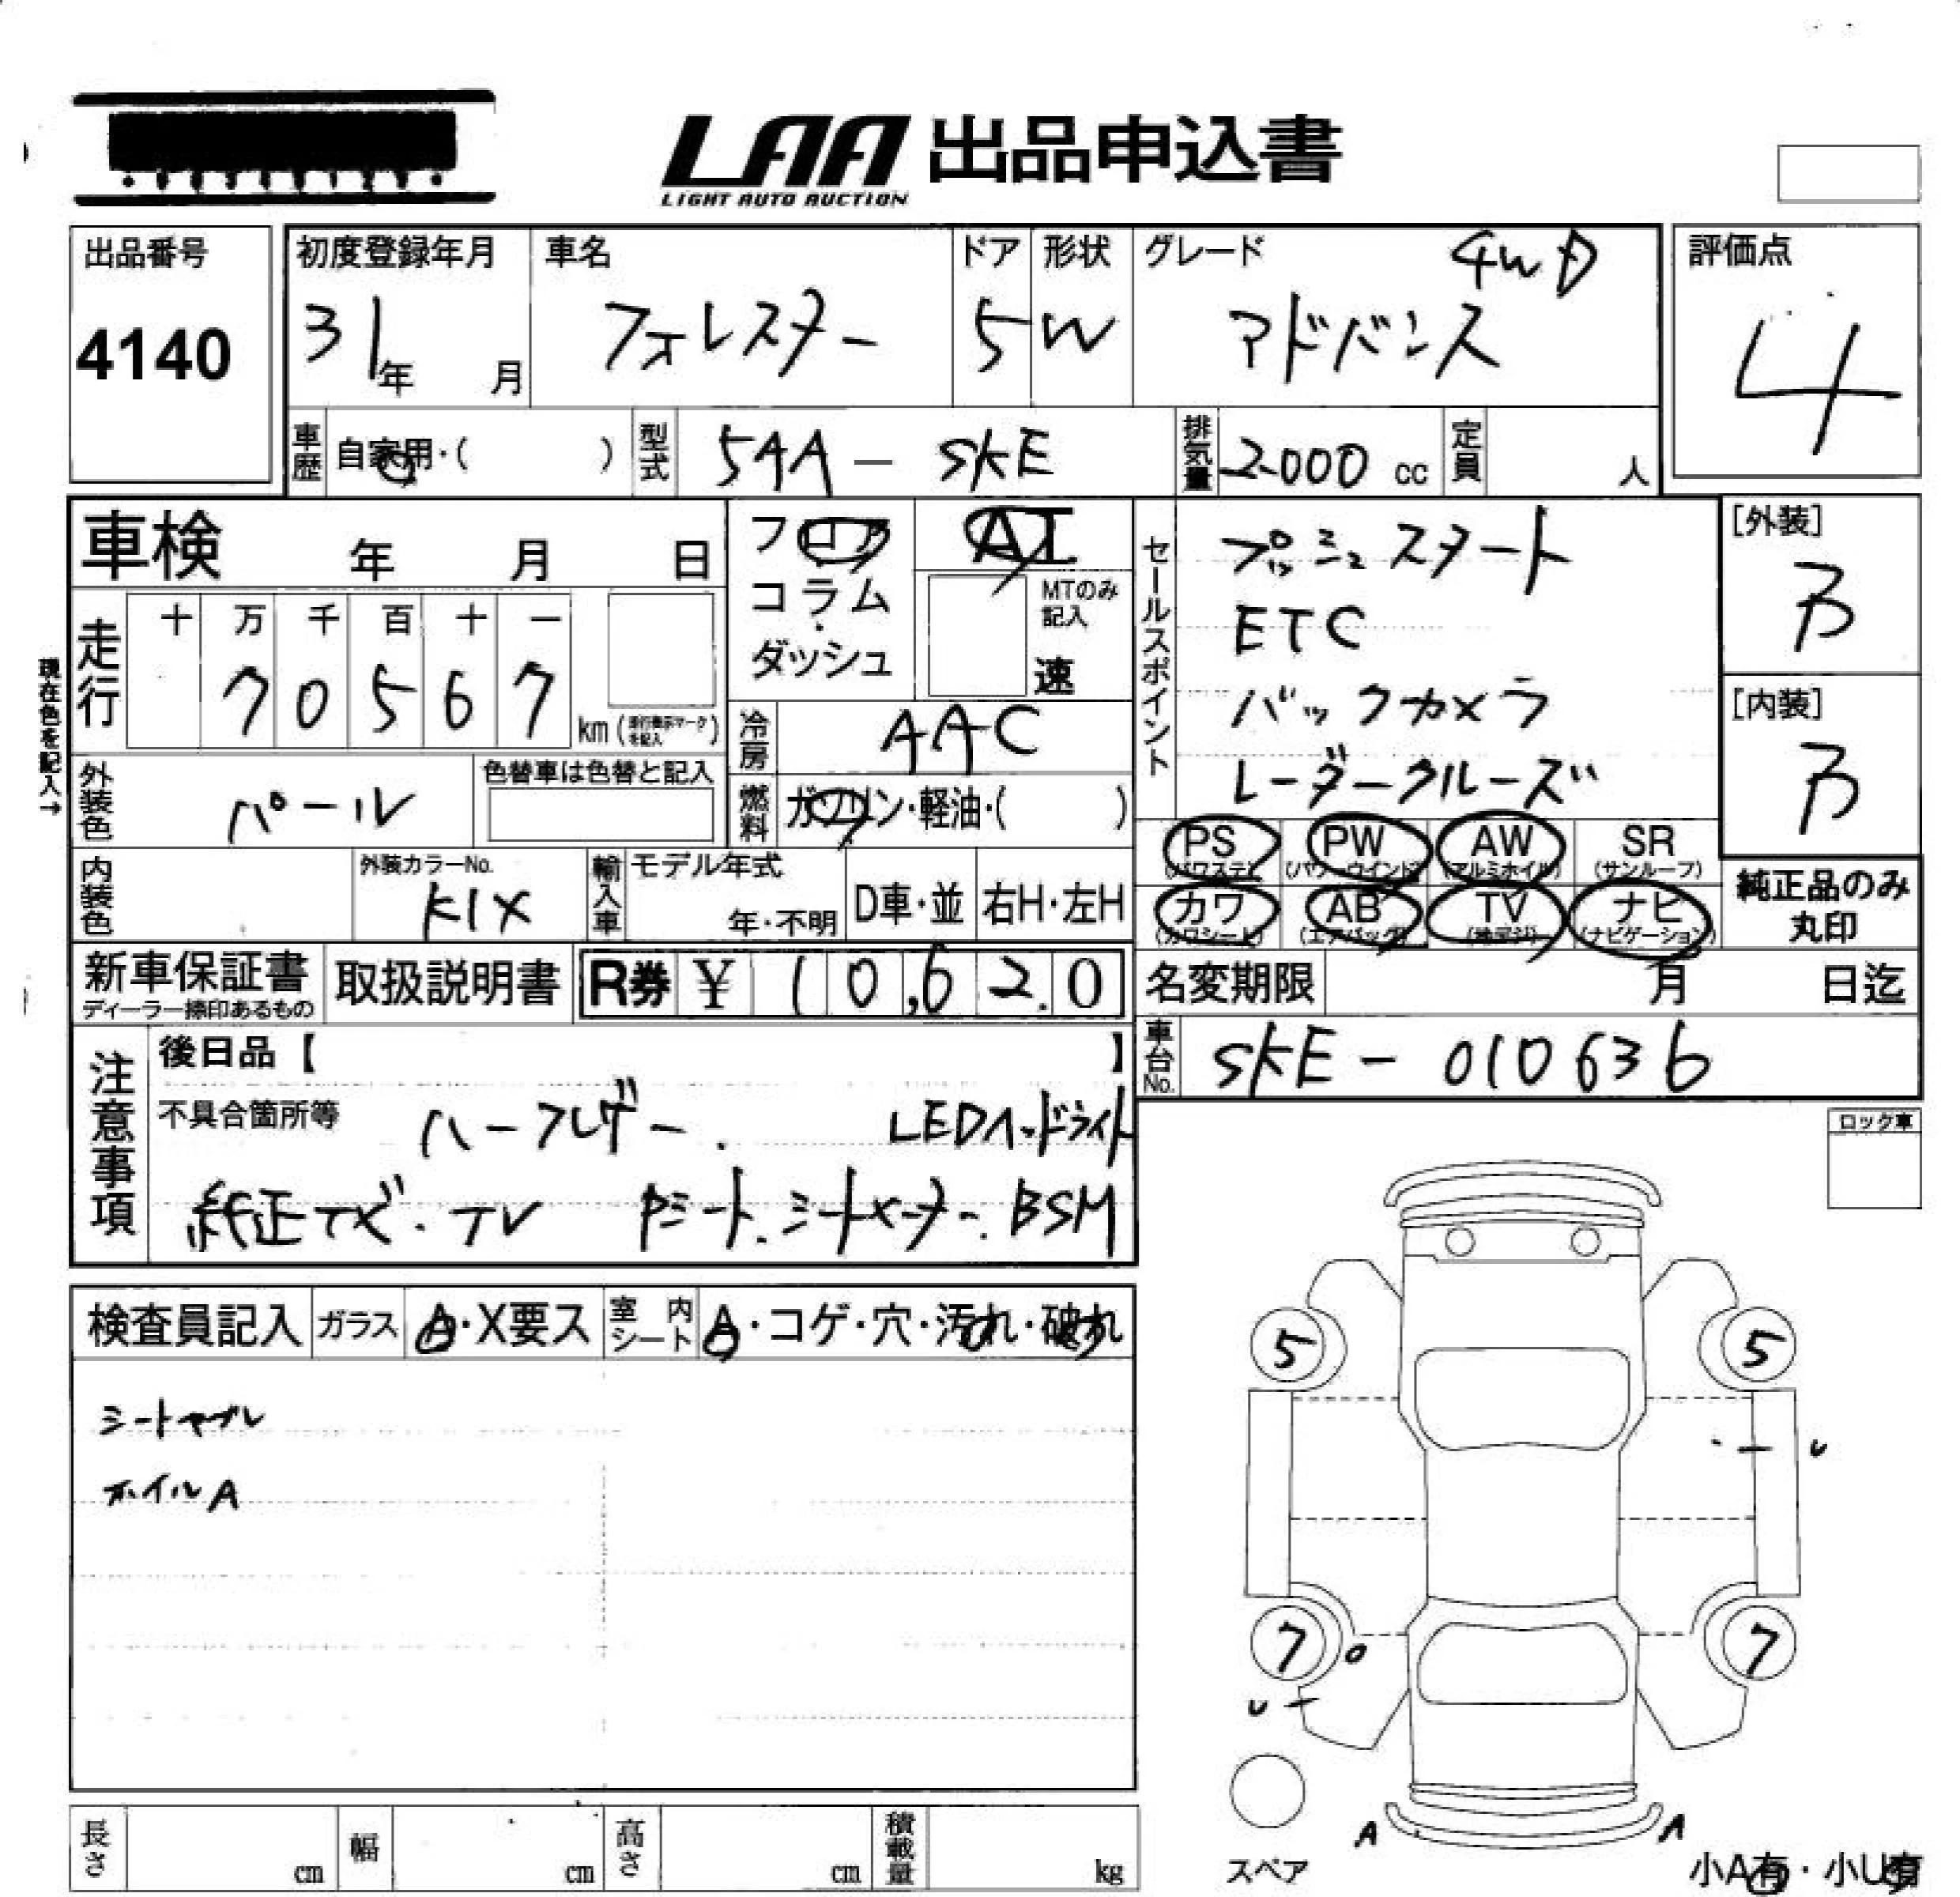 LAA 出品申込書
LIGHT AUTO AUCTION
出品番号
4140
初度登録年月
31年 月
車名
フォレスター
ドア
5
形状
W
グレード 4WD
アドバンス
評価点
4
車歴 自家用・( )
型式 5AA - SKE
排気量 2000 cc
定員 人
車検 年 月 日
フロア
コラム
・
ダッシュ
AT
MTのみ
記入
速
セールスポイント
プッシュスタート
ETC
バックカメラ
レーダークルーズ
[外装]
B
[内装]
B
現在色を記入→
走行
十 万 千 百 十 一
7 0 5 6 7 km (走行表示マークを記入)
冷房 AAC
外装色 パール
色替車は色替と記入
燃料 ガソリン・軽油・( )
PS (パワステ)
PW (パワーウインド)
AW (アルミホイル)
SR (サンルーフ)
カワ (カワシート)
AB (エアバッグ)
TV (地デジ)
ナビ (ナビゲーション)
純正品のみ
丸印
内装色
外装カラーNo.
K1X
輸入車
モデル年式
年・不明
D車・並
右H・左H
新車保証書
ディーラー捺印あるもの
取扱説明書
R券 ¥ 10,620
名変期限 月 日迄
車台No. SKE - 010636
注意事項
後日品【 】
不具合箇所等
ハーフレザー. LEDヘッドライト
純正ナビ・TV Pシート.シートヒーター. BSM
ロック車
検査員記入
ガラス A・X要ス
室内シート A・コゲ・穴・汚れ・破れ
シートヤブレ
ホイルA
5
5
U
7
7
U
スペア
A
A
小A有・小U有
長さ cm
幅 cm
高さ cm
積載量 kg